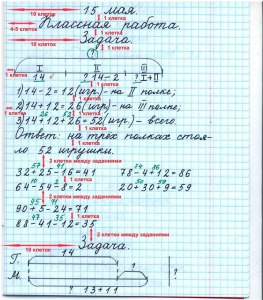 10 клеток 15 мая.
1 клетка
4-5 клеток Классная работа.
1 клетка
10 клеток Задача.
?
1 клетка
I II III
14 ? 14-2 ? I+II
1 клетка
1) 14-2=12 (игр)-на II полке;
2) 14+12=26 (игр)-на III полке;
26 52
3) 14+12+26=52 (игр)-всего.
Ответ: на трёх полках стоя-
ло 52 игрушки.
2 клетки между заданиями
57 41
32+25-16=41 78-4+12=86
64-54-8=2 20+30+9=59
95 71
90+5-24=71 2 клетки между заданиями
47 35
88-41-12=35
3 клетки между заданиями
10 клеток Задача.
14
Г.
М. ? ?
? 13+11